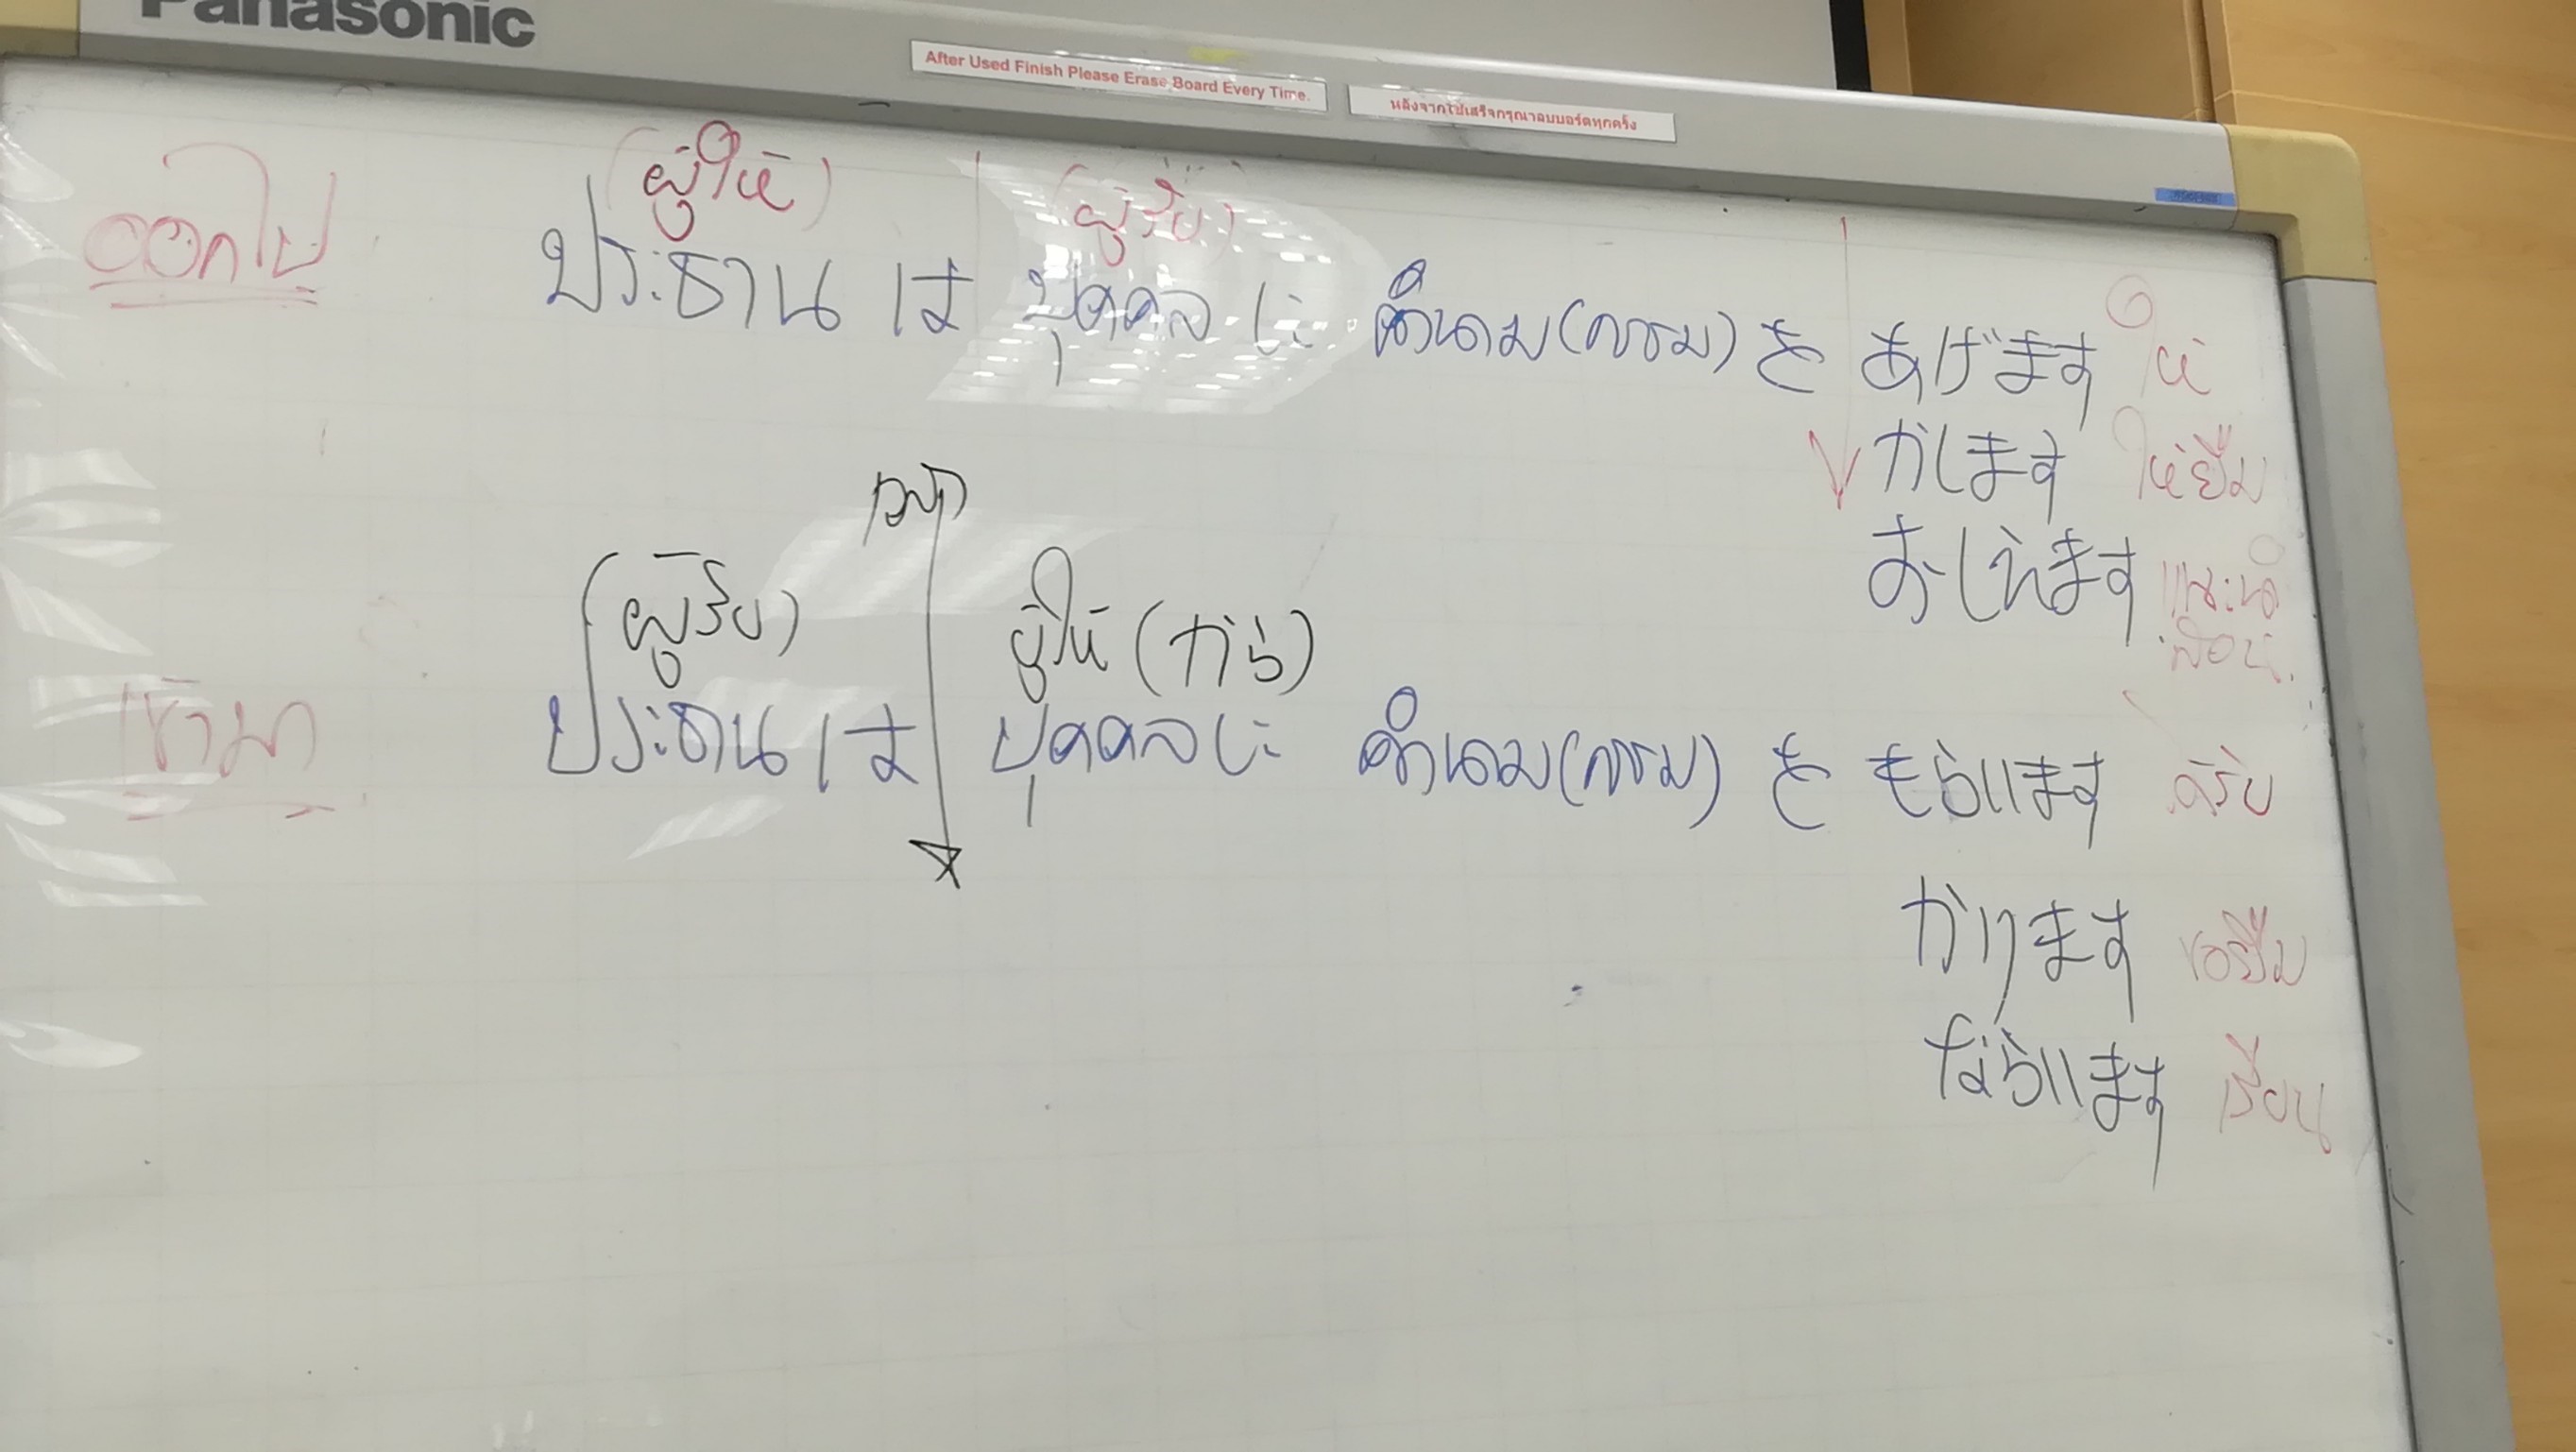 Panasonic
After Used Finish Please Erase Board Every Time.
หลังจากใช้เสร็จกรุณาลบบอร์ดทุกครั้ง
ออกไป (ผู้ให้) (ผู้รับ)
ประธาน は บุคคล に คำนาม(กรรม) を あげます ให้
かします ให้ยืม
おしえます แนะนำ
สอน
(ผู้รับ) ผู้ให้ (から)
เข้ามา ประธาน は บุคคล に คำนาม(กรรม) を もらいます ได้รับ
かります ขอยืม
ならいます เรียน